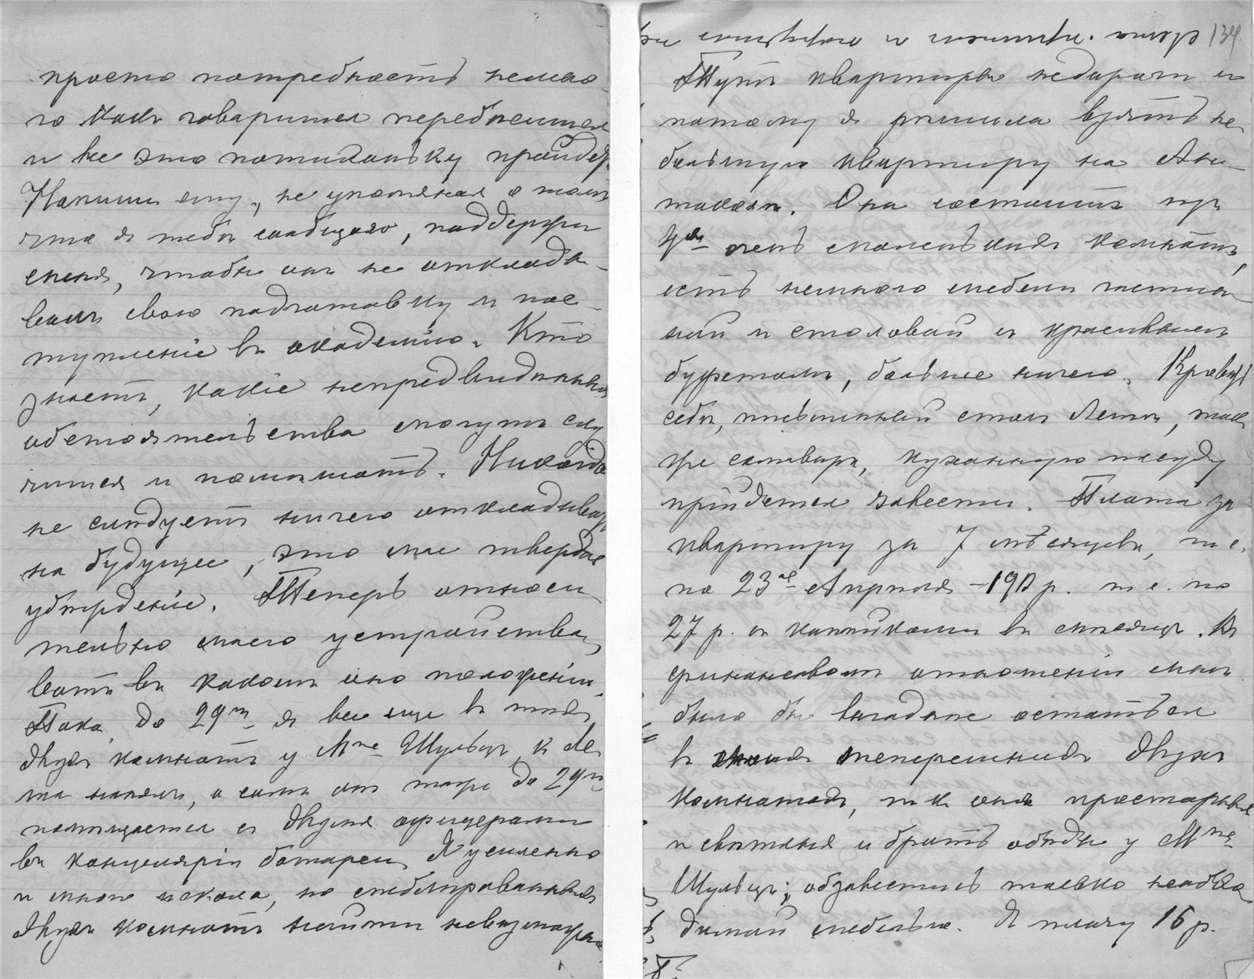 просто потребность немно-
го какъ говорится перебеситься
и все это потихоньку пройдетъ
Напиши ему, не упоминая о томъ
что я тебѣ сообщаю, поддержи
меня, чтобы онъ не отклады-
валъ свою подготовку и пос-
тупленіе въ академію. Кто
знаетъ, какіе непредвидѣнныя
обстоятельства могутъ слу-
читься и помѣшать. Никогда
не слѣдуетъ ничего откладывать
на будущее, это мое твердое
убѣжденіе. Теперь относи-
тельно моего устройства,
вотъ въ какомъ оно положеніи.
Пока до 29го я все еще въ тѣхъ
двухъ комнатъ у Mme Шульцъ, к
нанялъ, а самъ отъ до 29го
помѣщается съ двумя офицерами
въ канцеляріи батареи. Я усиленно
и много искала, но меблированныхъ
двухъ комнатъ найти невозможно
134
Тутъ квартиры недороги и
потому я рѣшила взять не-
большую квартиру на
Она состоитъ изъ
4хъ очень маленькихъ комнатъ,
есть немного мебели гостин-
ной и столовой и красивымъ
буфетомъ, больше ничего. Кровать
себѣ, письменный столъ так-
же самоваръ, кухонную посуду
придется завести. Плата за
квартиру за 7 мѣсяцевъ, т. е.
по 23ее Апрѣля – 190 р. т. е. по
27 р. съ копѣйками въ мѣсяцъ. Въ
финансовомъ отношеніи мнѣ
было бы выгоднѣе остаться
въ теперешнихъ двухъ
комнатахъ, т. к. они просторныя
и свѣтлыя и брать обѣды у Mme
Шульцъ; обзавестись только необхо-
димой мебелью. Я плачу 15 р.